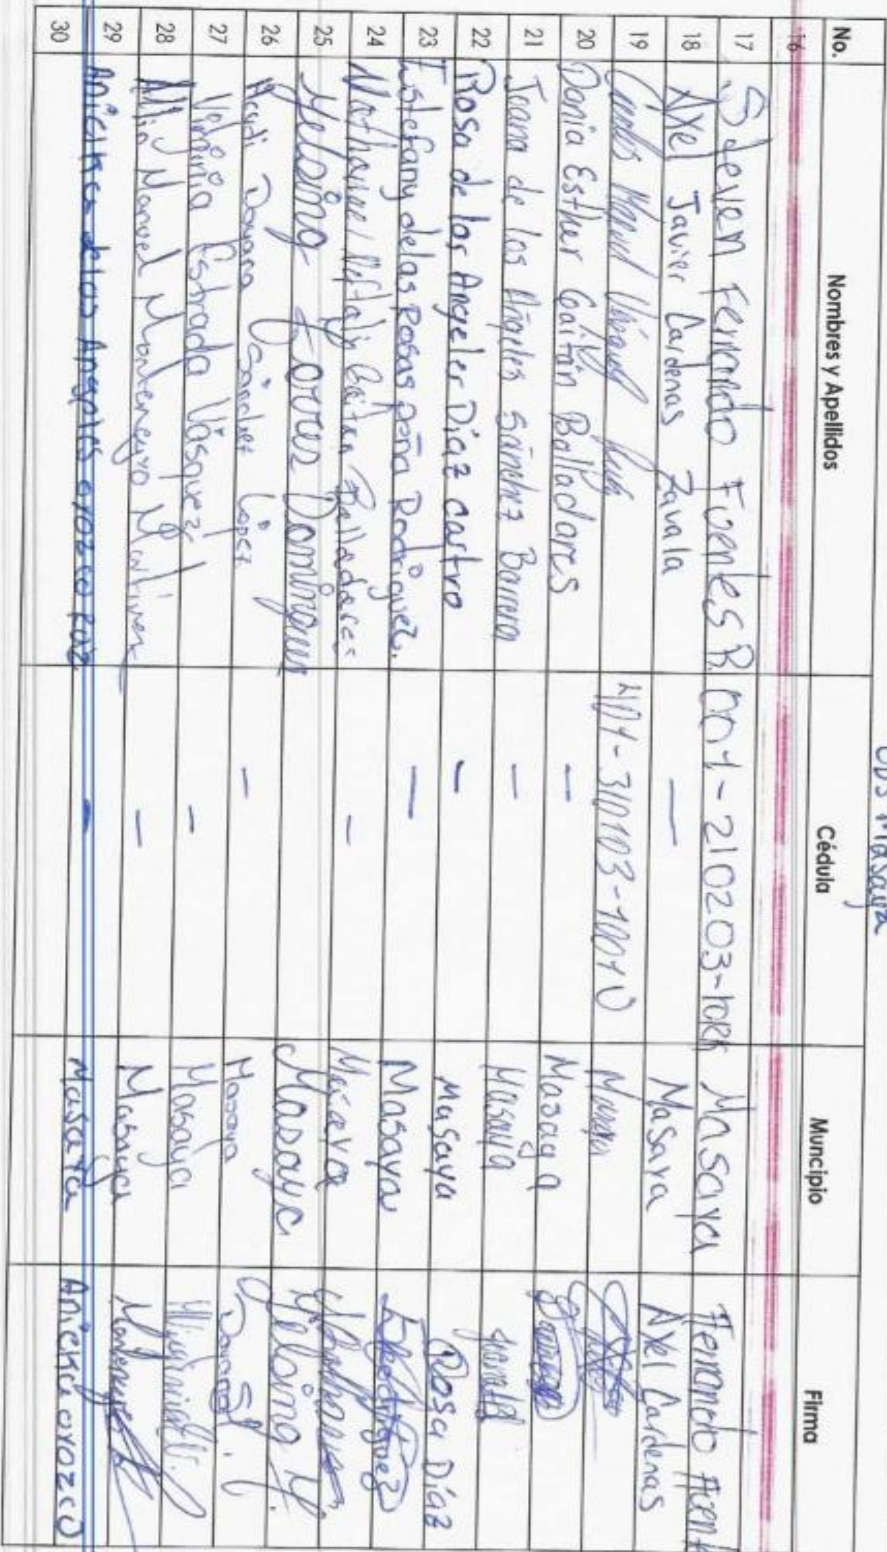 UDS Masaya
No. Nombres y Apellidos Cédula Muncipio Firma
16
17 Steven Fernando Fuentes R. 001-210203- Masaya Fernando
18 Axel Javier Cardenas Zavala — Masaya Axel Cardenas
19 Manuel 401-310103-1001U
20 Dania Esther Gaitán Balladares — Masaya
21 Juana de los Ángeles Sánchez Barrera — Masaya
22 Rosa de los Angeles Díaz castro — Masaya Rosa Díaz
23 Estefany de las Rosas peña Rodriguez. — Masaya
24 Nathanael Neftaly Gaitan Balladares — Masaya
25 Helsing Torrez Dominguez Masaya Helsing
26 Dayana Sánchez López — Masaya
27 Virginia Estrada Vásquez — Masaya
28 Manuel Montenegro Martinez — Masaya
29 Anielka delos Angeles orozco — Masaya Anielka orozco
30